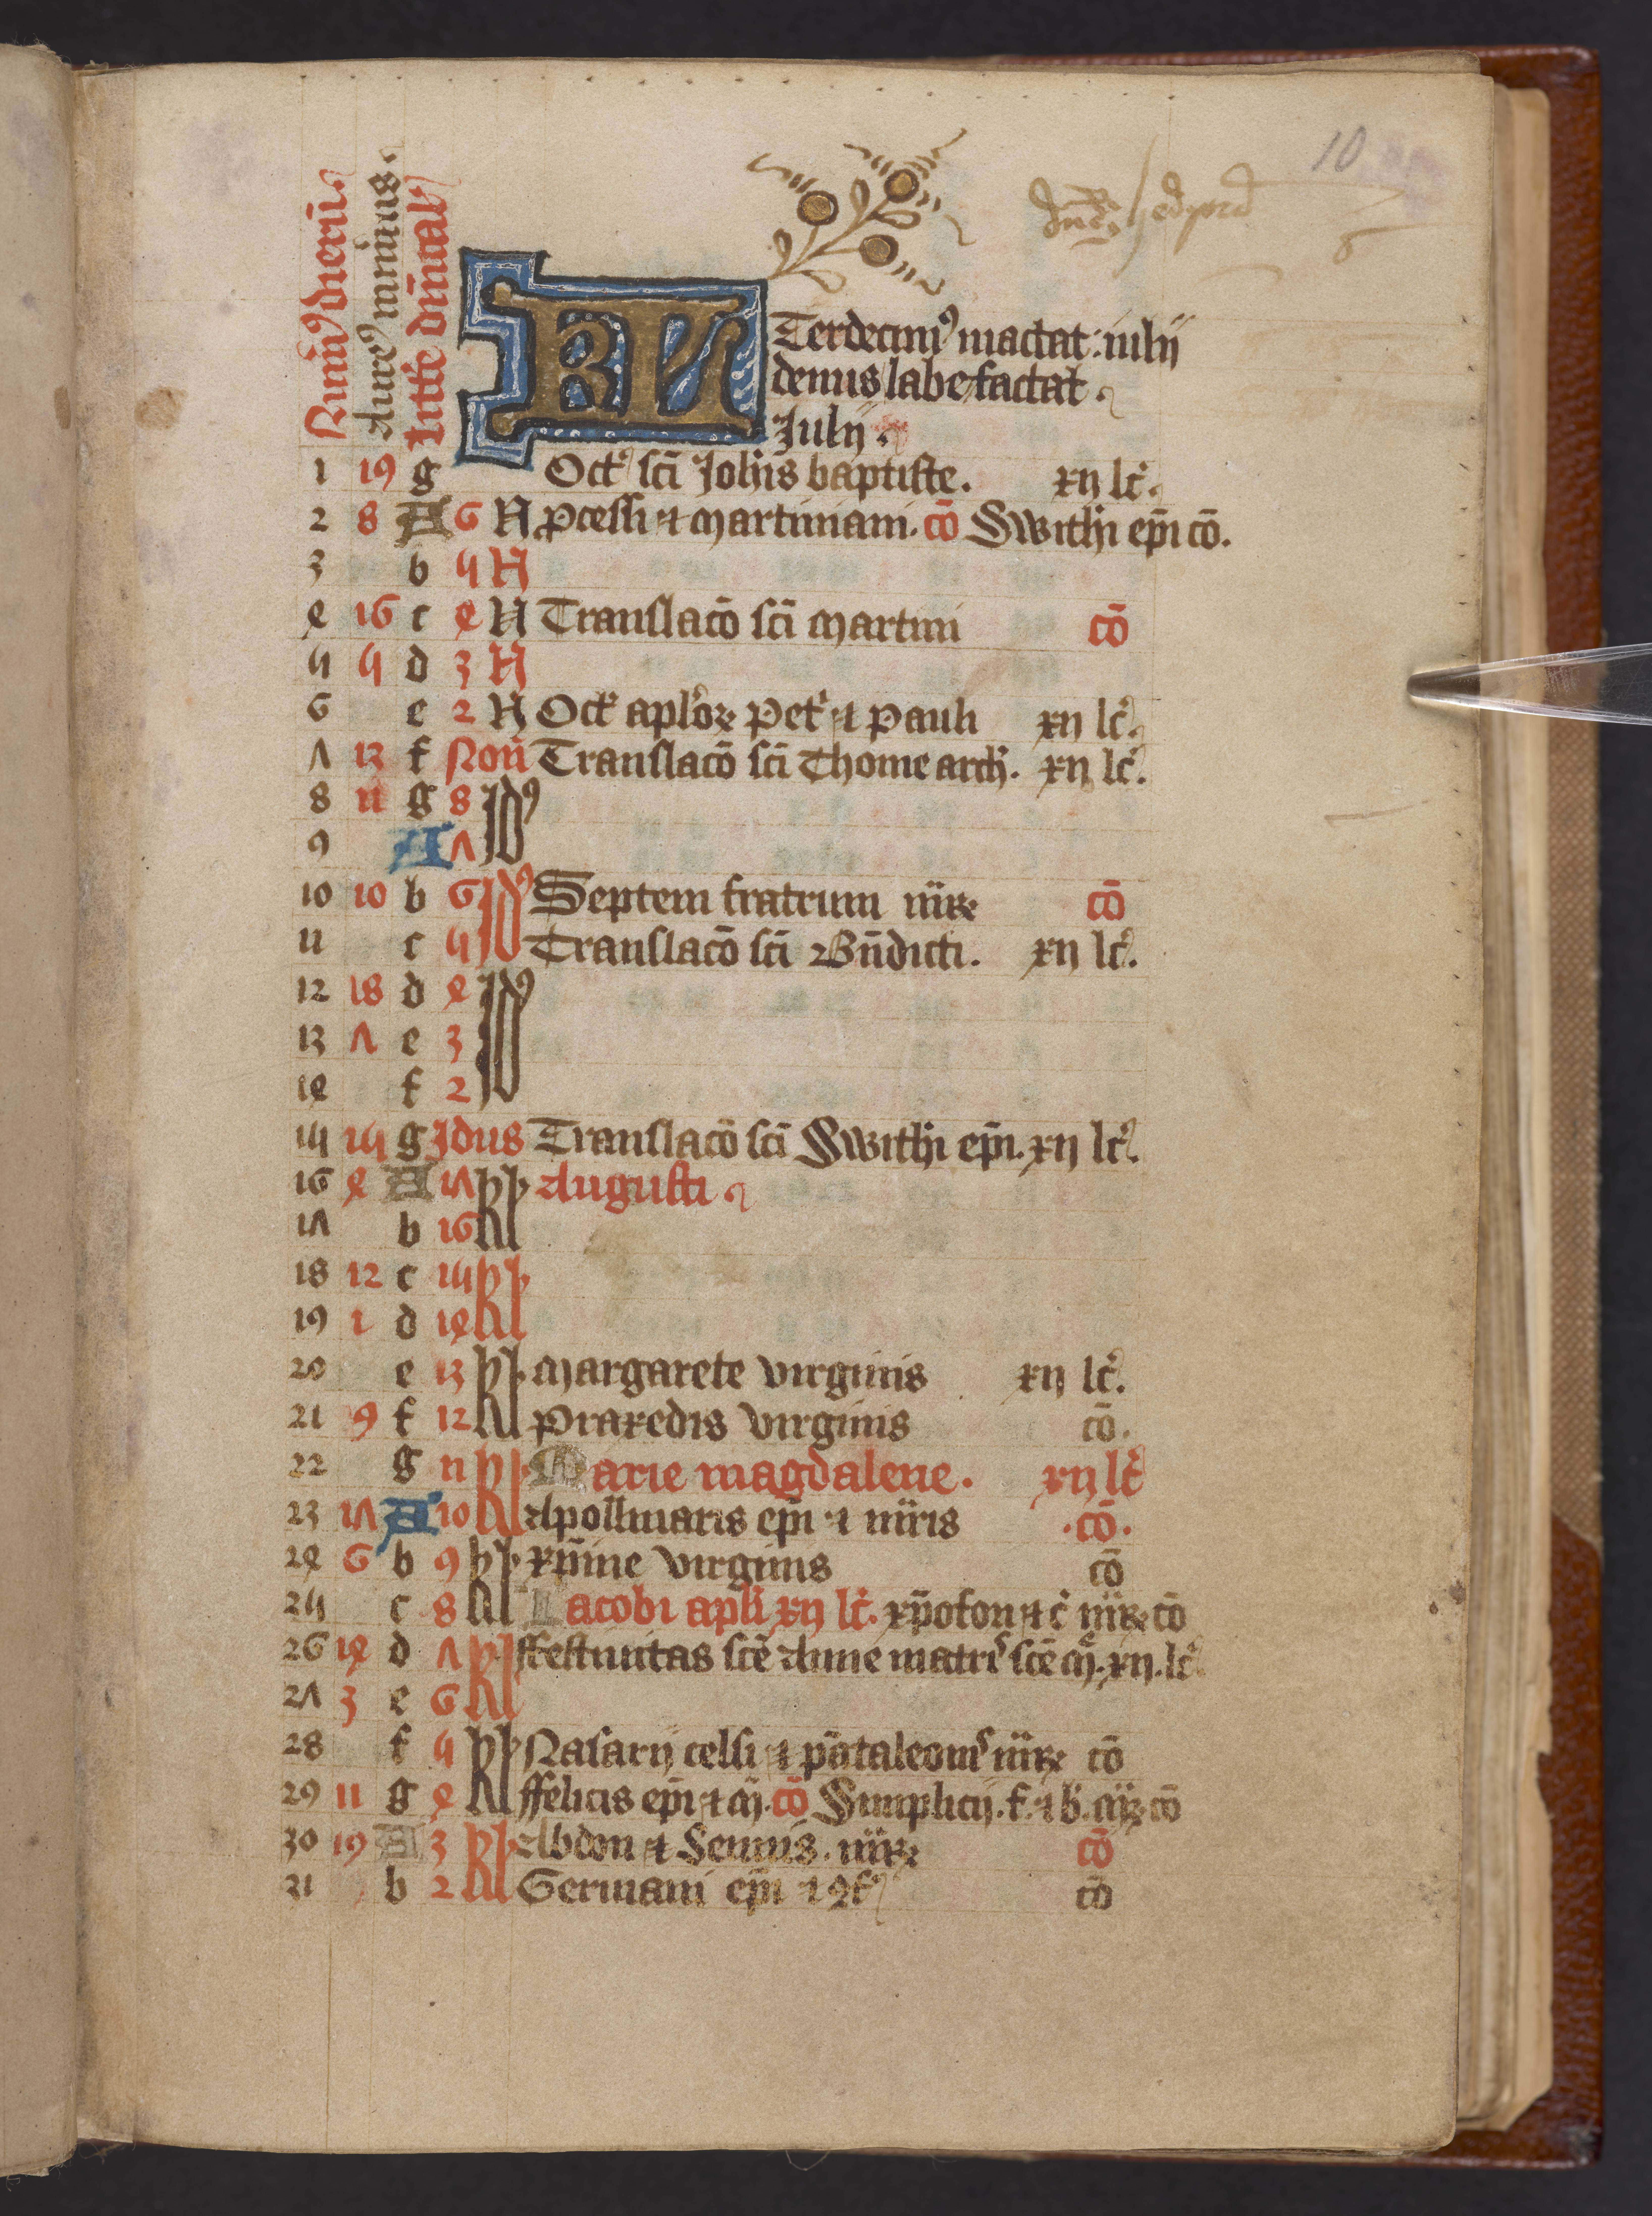 10
Num⁹ dierū
Aure⁹ numerus
Littere dn̄ical
KL
Terdecim⁹ mactat: iulij
denus labefactat
Julij.
1 19 g Oct' sci Joh̄is baptiste. xij lc̄.
2 8 A 6 N p̄cessi ⁊ martiniani. cō Swithi ep̄i cō.
3 b 5 N
4 16 c 4 N Translacō sci martini cō
5 5 d 3 N
6 e 2 N Oct' aplōꝝ Pet' ⁊ Pauli xij lc̄.
7 13 f Noñ Translacō sci Thome arch'. xij lc̄.
8 2 g 8 Id⁹
9 A 7
10 10 b 6 Id⁹ Septem fratrum mr̄ꝝ cō
11 c 5 Translacō sci Bn̄dicti. xij lc̄.
12 18 d 4 Id⁹
13 7 e 3
14 f 2
15 15 g Idus Translacō sci Swithi ep̄i. xij lc̄.
16 4 A 17 kl Augusti
17 b 16
18 12 c 15 kl
19 1 d 14
20 e 13 kl Margarete virginis xij lc̄.
21 9 f 12 Praxedis virginis cō.
22 g 11 kl Marie magdalene. xij lc̄
23 17 A 10 Apollinaris ep̄i ⁊ mr̄is .cō.
24 6 b 9 kl xp̄ine virginis cō
25 c 8 Jacobi apl̄i xij lc̄. xp̄ofori ⁊ c̄ mr̄ꝝ cō
26 14 d 7 kl ffestiuitas scē Anne matr̄ scē m̄. xij. lc̄.
27 3 e 6
28 f 5 kl Nasarij celsi ⁊ pātaleonis mr̄ꝝ cō
29 11 g 4 ffelicis ep̄i ⁊ m̄. cō Simplicij. f. ⁊ b. m̄ꝝ cō
30 19 A 3 kl Abdon ⁊ Sennis. mr̄ꝝ cō
31 b 2 Germani ep̄i ⁊ ꝯf' cō